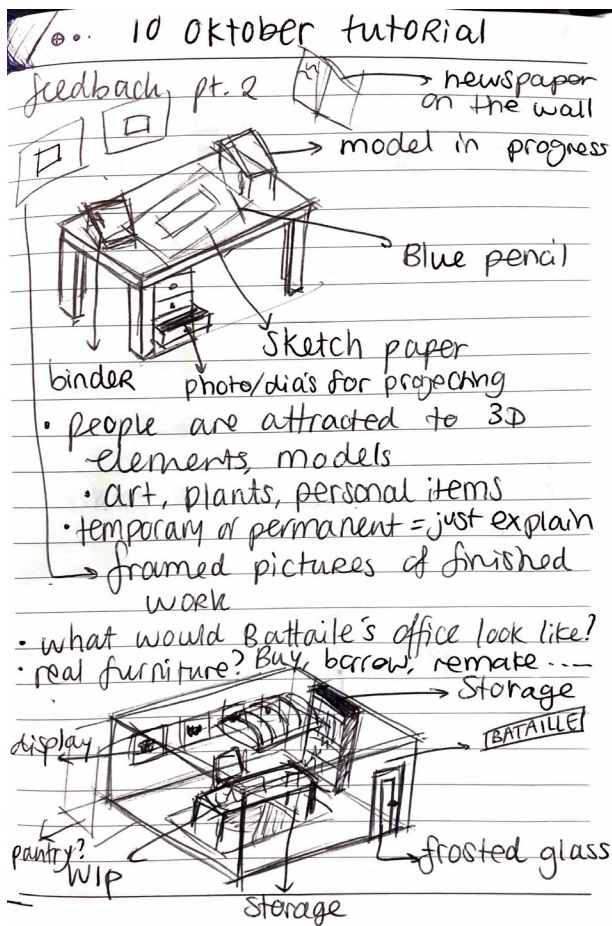 10 oktober tutorial
feedback pt. 2
newspaper
on the wall
model in progress
Blue pencil
Sketch paper
binder
photo/dia's for projecting
• people are attracted to 3D
elements, models
• art, plants, personal items
• temporary or permanent = just explain
framed pictures of finished
work
• what would Battaile's office look like?
• real furniture? Buy, borrow, remake ....
Storage
display
BATAILLE
pantry?
WIP
frosted glass
Storage